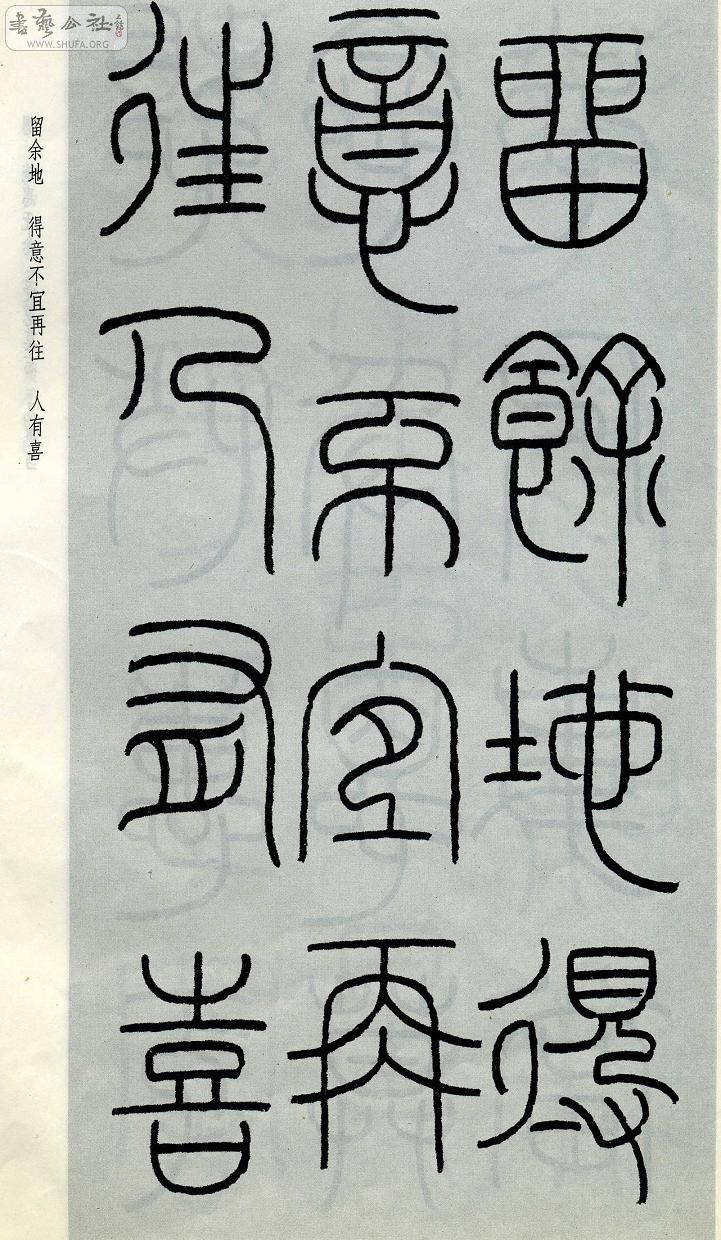 書藝公社
WWW.SHUFA.ORG
留餘地得
意不宜再
往人有喜
留余地　得意不宜再往　人有喜